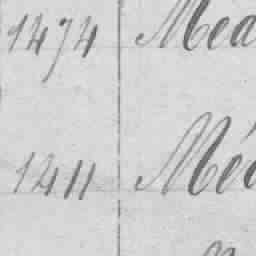 1474 Méa
1411 Méd